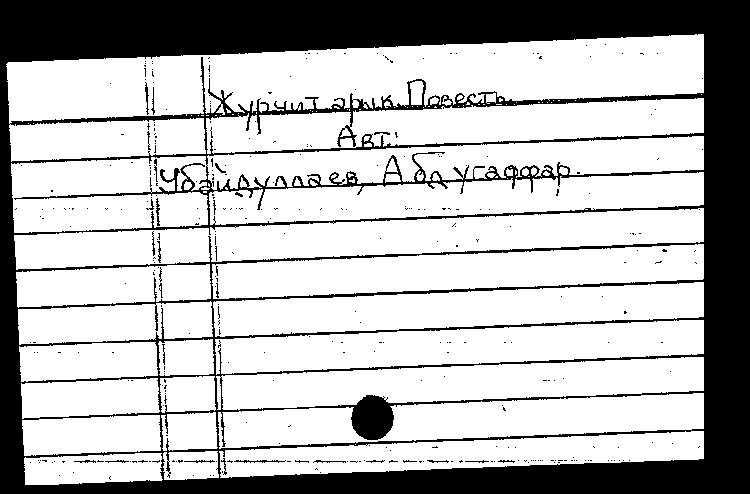 Журчит арык. Повесть.
Авт.:
Убайдуллаев, Абдугаффар.